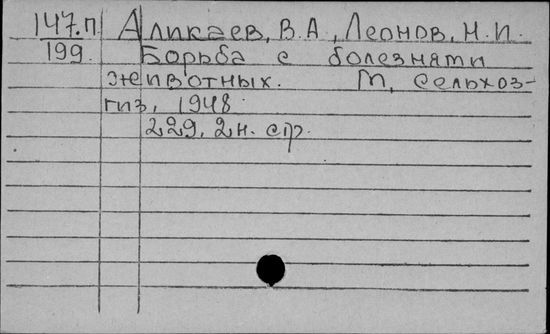 147.П Аликаев, В.А., Леонов, Н.И.
199 Борьба с болезнями
животных. М, Сельхоз-
гиз, 1948
229, 2 н. стр.